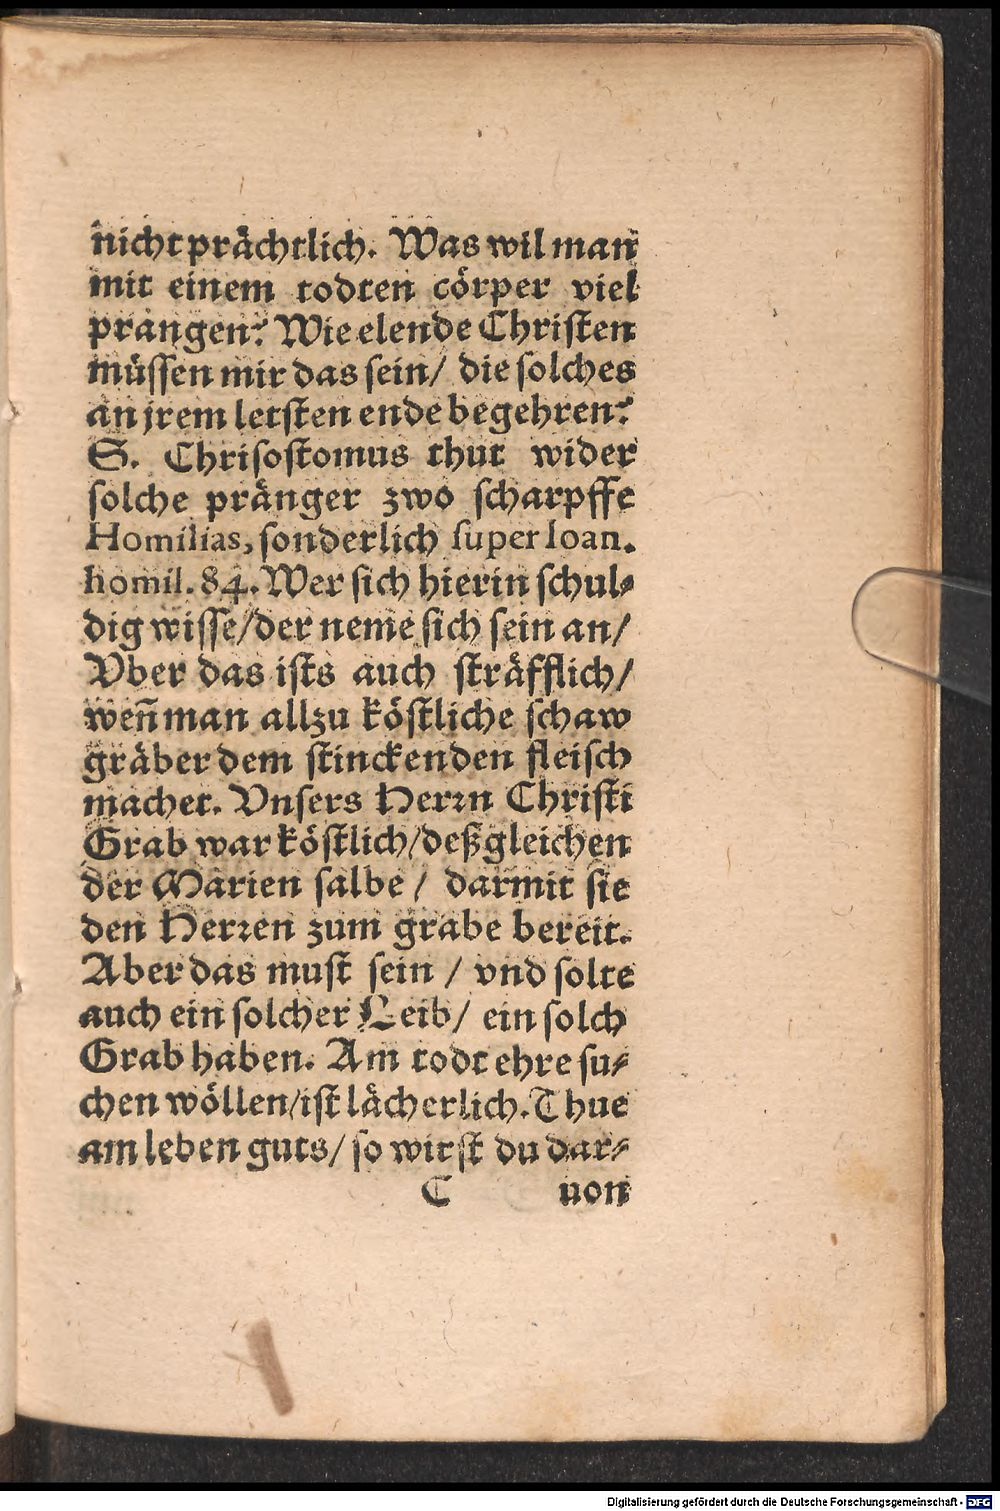 nicht prächtlich. Was wil man
mit einem todten cörper viel
prangen? Wie elende Christen
müssen mir das sein/ die solches
an jrem letsten ende begehren?
S. Chrisostomus thut wider
solche pränger zwo scharpffe
Homilias, sonderlich super Ioan.
homil. 84. Wer sich hierin schul-
dig wisse/der neme sich sein an/
Vber das ists auch sträfflich/
weñ man allzu köstliche schaw
gräber dem stinckenden fleisch
machet. Vnsers Herꝛn Christi
Grab war köstlich/deßgleichen
der Marien salbe / darmit sie
den Herꝛen zum grabe bereit.
Aber das must sein / vnd solte
auch ein solcher Leib/ ein solch
Grab haben. Am todt ehre su-
chen wöllen/ist lächerlich. Thue
am leben guts/ so wirst du dar-
C von
Digitalisierung gefördert durch die Deutsche Forschungsgemeinschaft - DFG